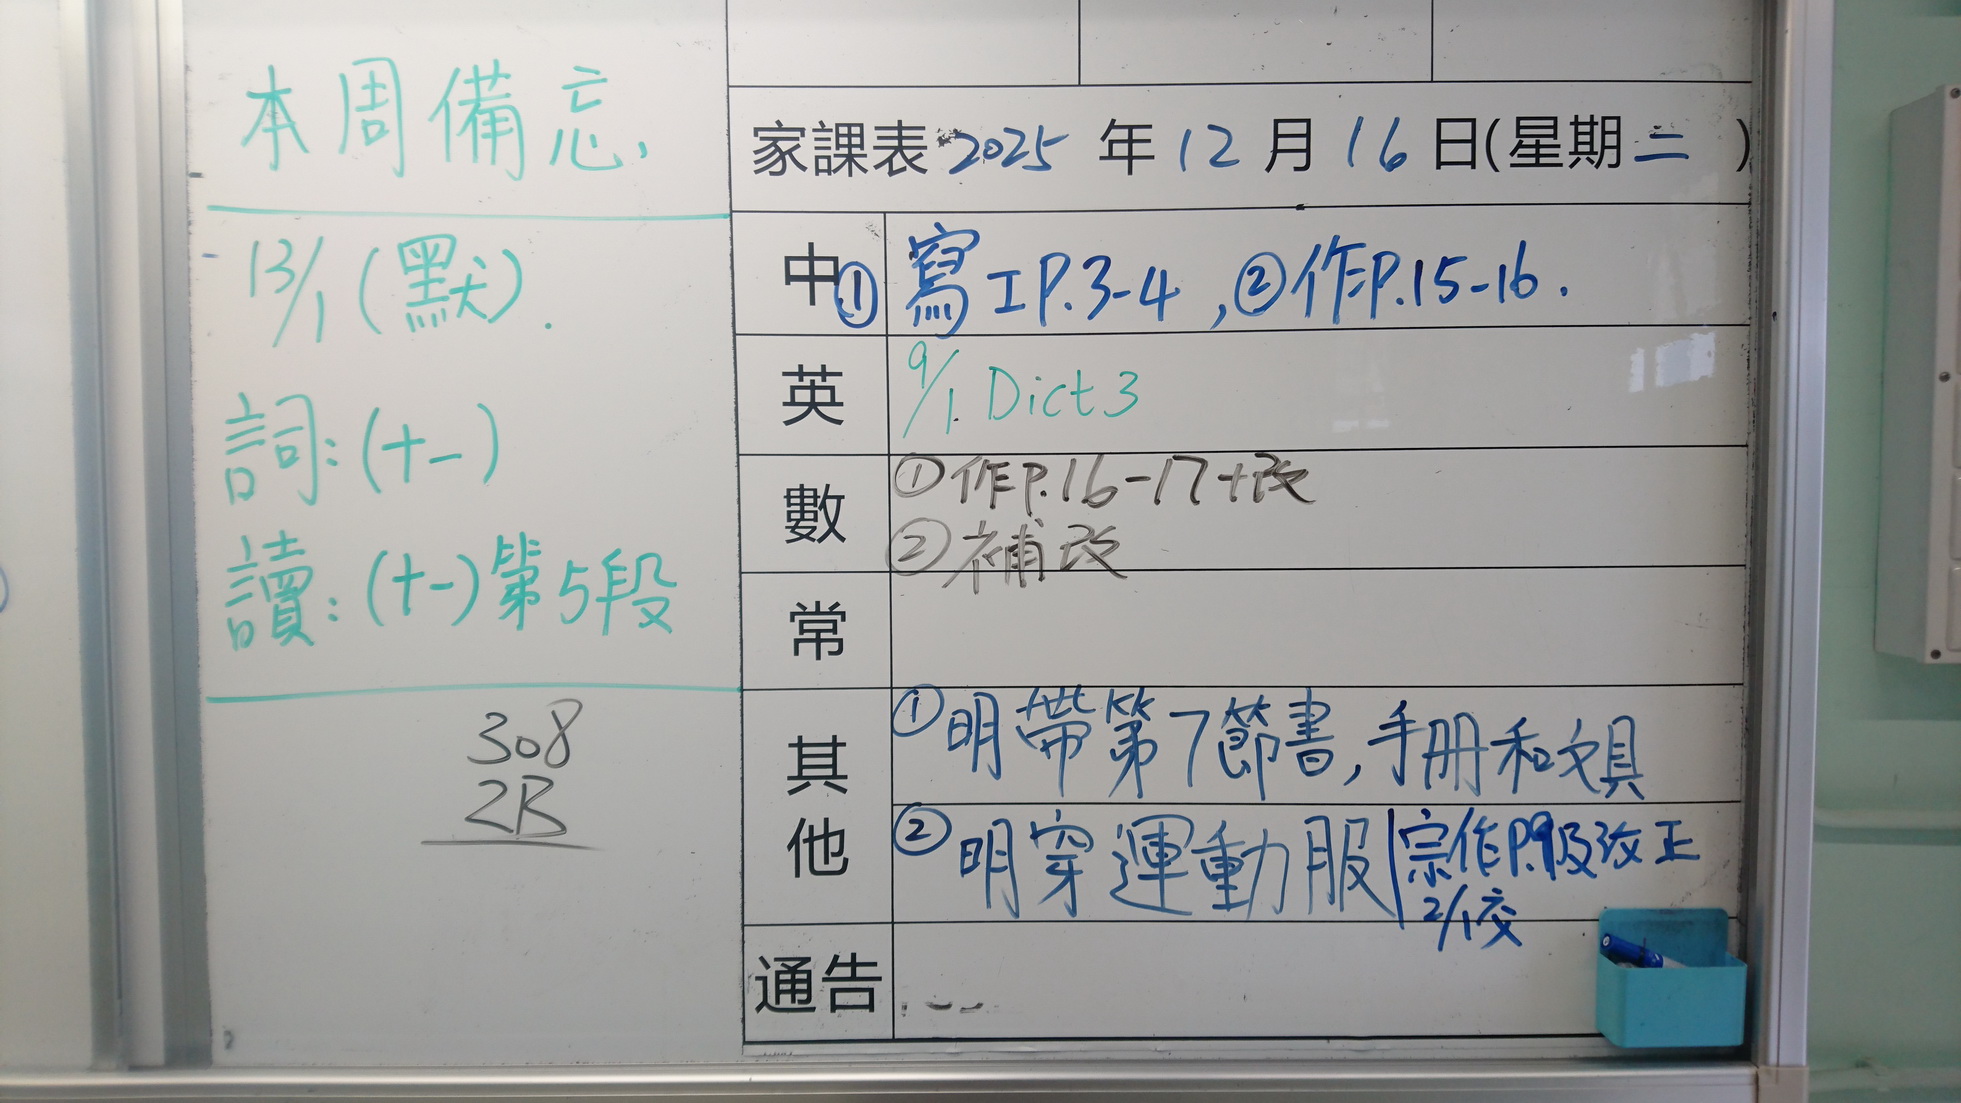 本周備忘
13/1 (默).
詞:(十一)
讀:(十一)第5段
308
2B
家課表 2025 年 12 月 16 日(星期二)
中 ① 寫工P.3-4, ②作P.15-16.
英 9/1 Dict 3
數 ①作P.16-17+改
②補改
常
其他 ①明帶第7節書,手冊和文具
②明穿運動服|宗作P.9及改正
2/1交
通告